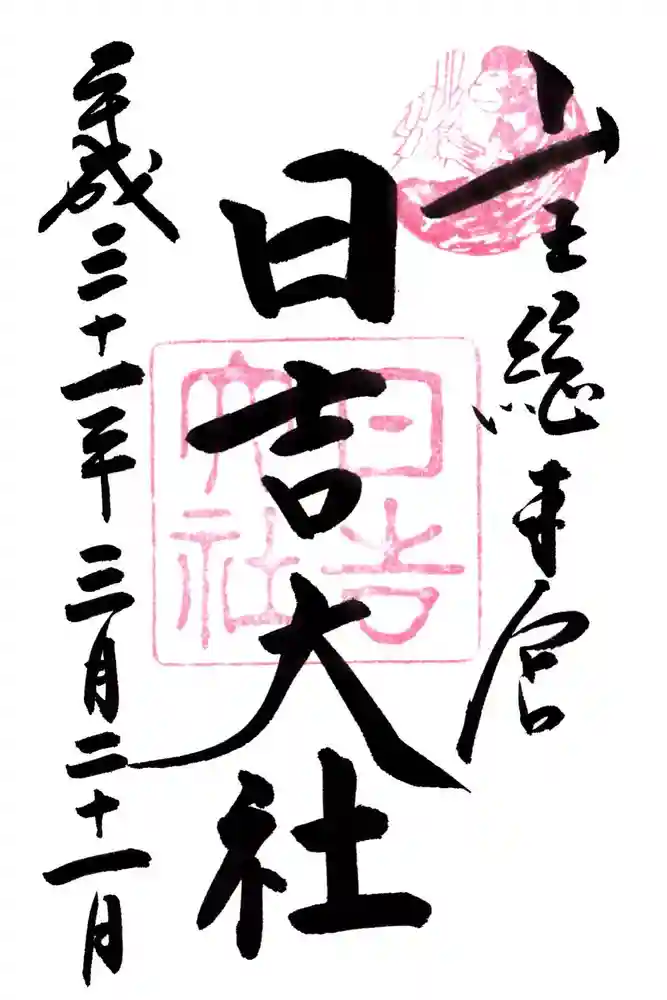 山王総本宮
日吉大社
平成三十一年三月二十一月
日吉
大社